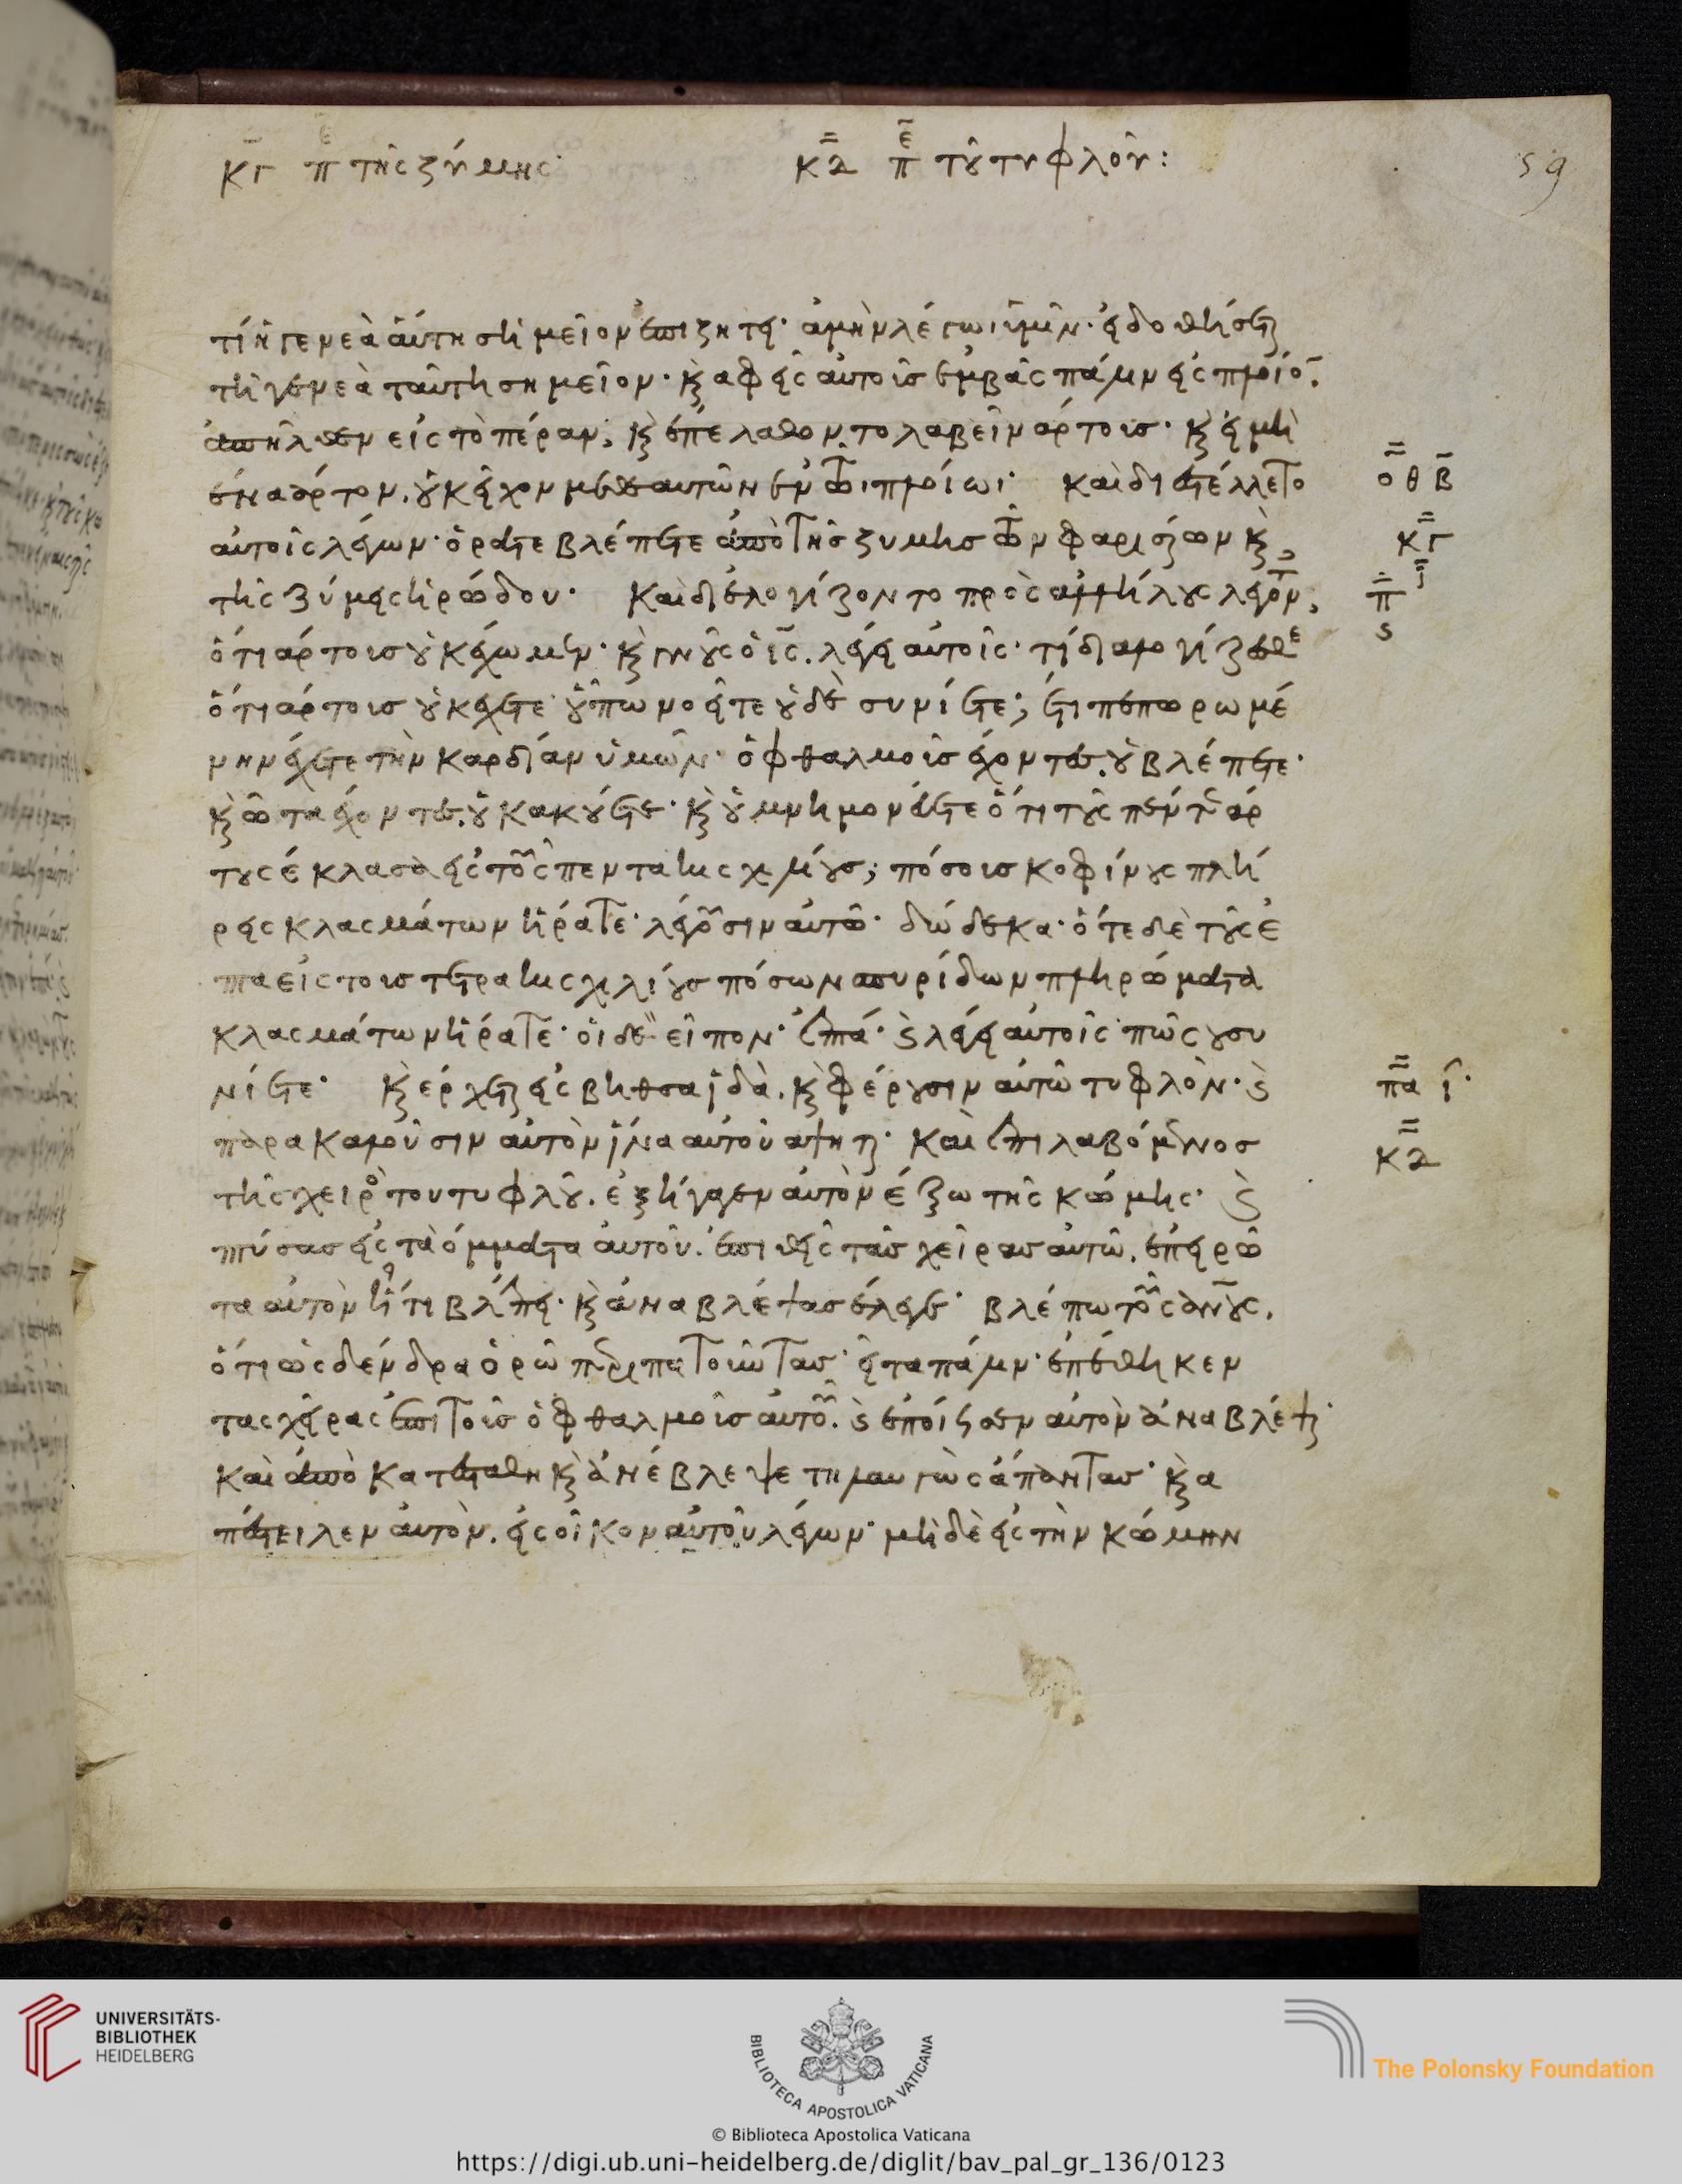 κγ π τῆς ζύμης· κδ π τοῦ τυφλοῦ: 59
τί ἡ γενεὰ αὕτη σημεῖον ἐπιζητεῖ· ἀμὴν λέγωι ὑμῖν· εἰ δοθήσεται
τῆ γενεὰ ταύτη σημεῖον· καὶ αφεὶς αὐτοῖς ἐμβὰς πάλιν εἰς πλοῖον·
ἀπῆλθεν εἰς τὸ πέραν· καὶ ἐπελαθον το λαβεῖν αρτοισ· καὶ εἰ μὴ
ἕνα άρτον. οὐκ εἶχον μεθ αυτῶν ἐν τῶι πλοίωι· Καὶ διεστέλλετο οθ β
αὐτοῖς λέγων· ὁρᾶτε βλέπετε ἀπὸ τῆς ζυμησ τῶν φαρισαίων καὶ κγ
τῆς ζύμεις ἡρώδου· Καὶ διελογίζοντο πρὸς αλλήλους λέγον, π ι
ὅτι αρτοισ οὐκ έχωμεν· καὶ γνοὺς ὁ ις. λέγει αὐτοῖς· τί διαλογίζεσθε ς
ὅτι αρτοισ οὐκ έχετε οὔπω νοεῖτε οὐδὲ συνίετε; έτι πεπωρωμέ
νην έχετε τὴν καρδίαν ὑμῶν· ὀφθαλμοὶσ έχοντες. οὐ βλέπετε·
καὶ ὦτα έχοντες. οὐκ ακούετε· καὶ οὐ μνημονεύετε ὅτι τοὺς πέντε αρ
τους έκλασα εἰς τοὺς πεντακισχιλίους; πόσοισ κοφίνους πλή
ρεις κλασμάτων ἠρατε· λέγουσιν αὐτῶ· δώδεκα· ὅτε δὲ τοὺς ἑ
πτα εἰς τοισ τετρακισχιλίους πόσων σπυρίδων πληρώματα
κλασμάτων ἠρατε· οἱ δὲ εἶπον· ἑπτά· καὶ λέγει αὐτοῖς πῶς ου συ
νίετε· καὶ έρχεται εἰς βηθσαϊδὰ. καὶ φέρουσιν αὐτῶ τυφλὸν· καὶ πα ι·
παρακαλοῦσιν αὐτὸν ἵνα αὐτοῦ αψηται· Καὶ ἐπιλαβόμενος κδ
τῆς χειρὸς του τυφλοῦ. ἐξήγαγεν αὐτὸν έξω τῆς κώμης· καὶ
πτύσας εἰς τὰ όμματα αὐτοῦ. ἐπιθεὶς τὰσ χεῖρασ αὐτῶ. ἐπειρώ
τα αὐτὸν ἠ τι βλέπει· καὶ ἀναβλέψασ έλεγε· βλέπω τοὺς ανους.
ὅτι ὡς δένδρα ὁρῶ περιπατοῦντας· εἶτα πάλιν· ἐπέθηκεν
τας χεῖρας ἐπι τοὶσ ὀφθαλμοὶσ αὐτοῦ. καὶ ἐποίησεν αὐτὸν ἀναβλέψαι·
καὶ ἀποκατεσταθη καὶ ἀνέβλεψε τηλαυγὼς ἁπαντας· καὶ α
πέστειλεν αὐτὸν. εἰς οἶκον αὐτοῦ λέγων· μηδὲ εἰς τὴν κώμην
UNIVERSITÄTS-
BIBLIOTHEK
HEIDELBERG
BIBLIOTECA APOSTOLICA VATICANA
The Polonsky Foundation
© Biblioteca Apostolica Vaticana
https://digi.ub.uni-heidelberg.de/diglit/bav_pal_gr_136/0123